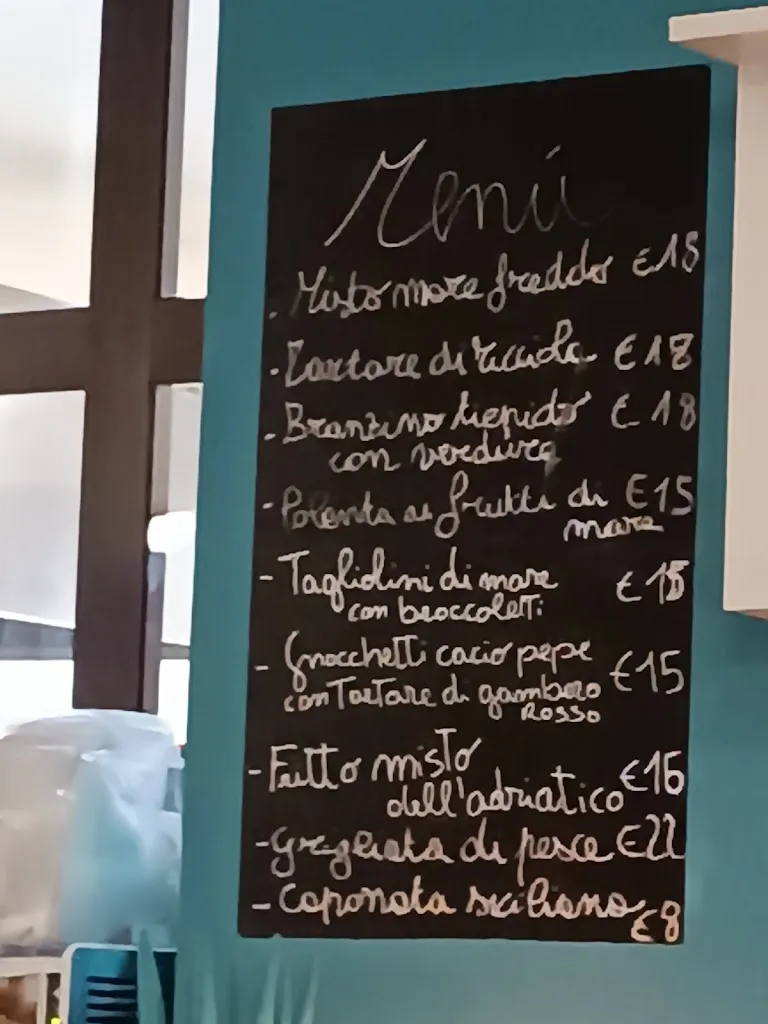 Menú
. Misto mare freddo €18
- Tartare di ricciola € 18
- Branzino tiepido € 18
con verdure
- Polenta ai frutti di €15
mare
- Tagliolini di mare €
con broccoletti
- Gnocchetti cacio pepe €15
con Tartare di gambero
ROSSO
- Fritto misto €16
dell'adriatico
- Grigliata di pesce €22
- Caponata siciliana €8